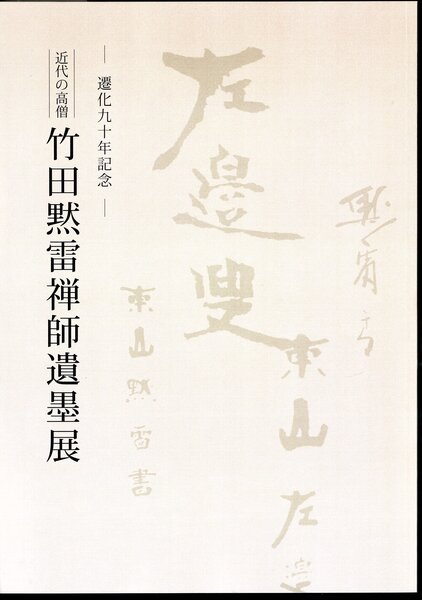 東山左
左邊叟
東山黙雷書
― 遷化九十年記念 ―
近代の高僧
竹田黙雷禅師遺墨展